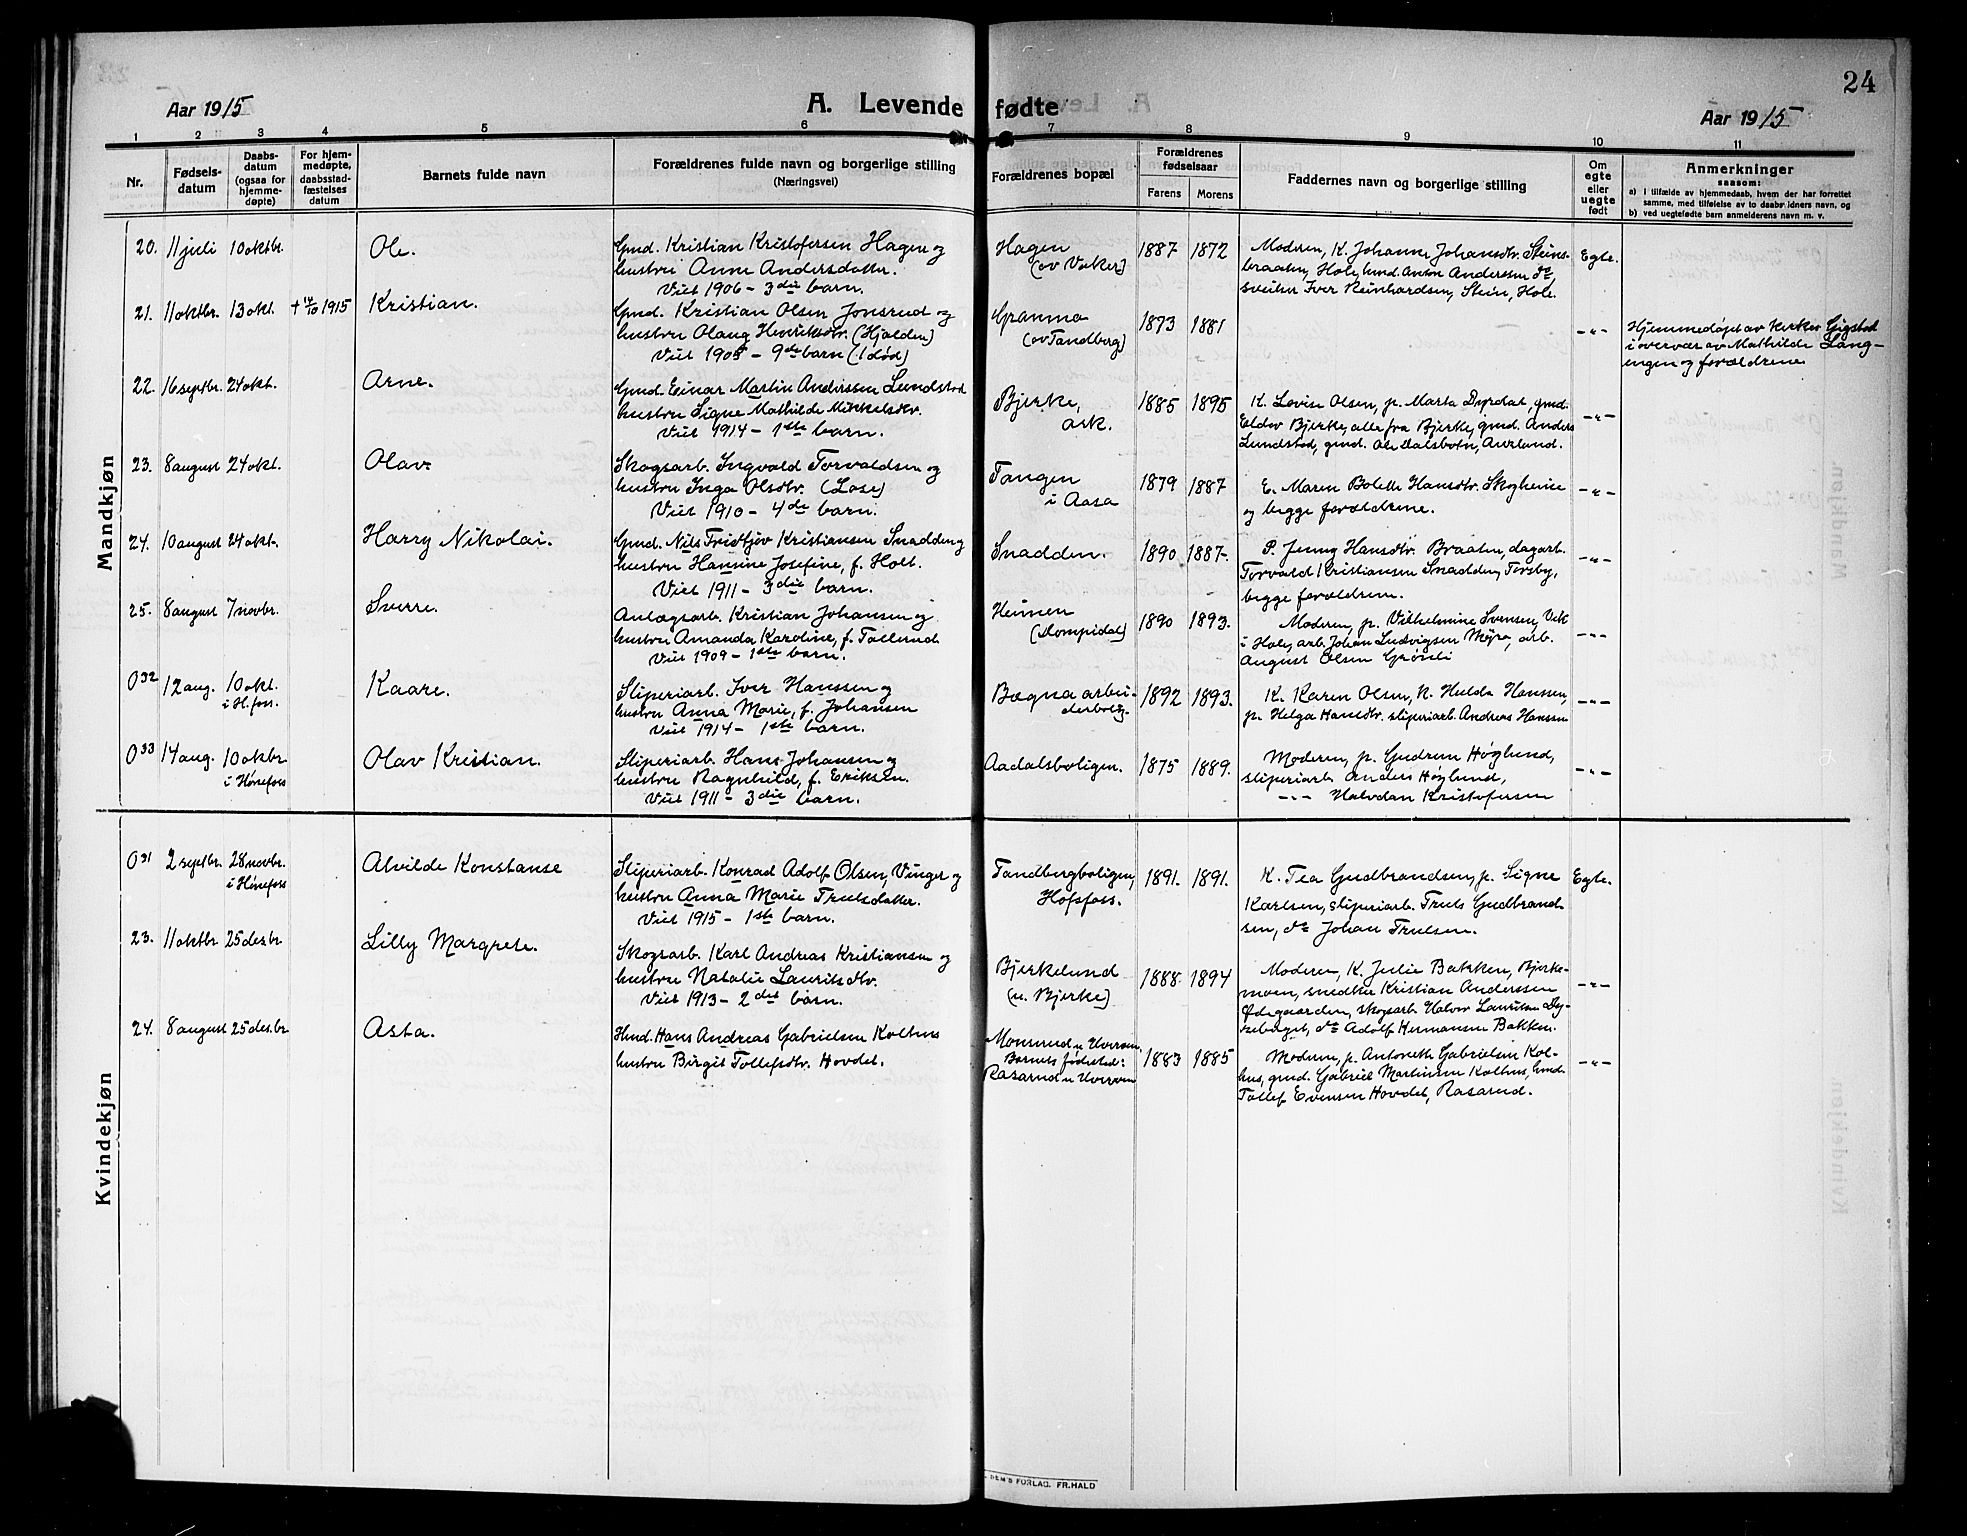 24
Aar 1915
A. Levende fødte
Aar 1915
1 2 3 4 5 6 7 8 9 10 11
Nr.
Fødsels-
datum
Daabs-
datum
(ogsaa for
hjemme-
døpte)
For hjem-
medøpte,
daabsstad-
fæstelses
datum
Barnets fulde navn
Forældrenes fulde navn og borgerlige stilling
(Næringsvei)
Forældrenes bopæl
Forældrenes
fødselsaar
Farens Morens
Faddernes navn og borgerlige stilling
Om
egte
eller
uegte
født
Anmerkninger
saasom:
a) I tilfælde av hjemmedaab, hvem der har forrettet
samme, med tilføielse av to daabsvidners navn, og
b) ved uegtefødte barn anmelderens navn m. v.
Mandkjøn
20. 11 juli 10 oktbr. Ole.
Gmd. Kristian Kristofersen Hagen og
hustru Anne Andersdatter.
Viet 1906 - 3die barn.
Hagen
(av Vaker)
1887 1872
Moderen, K. Johanne Johansdtr. Steins-
braaten, Hole, gmd. Anton Anderssen do,
sveiser Iver Reinhardsen, Stein, Hole.
Egte.
21. 11 oktbr. 13 okt. † 14/10 1915 Kristian.
Gmd. Kristian Olsen Jonsrud og
hustru Olaug Henriksdtr. (Hjalden)
Viet 1905 - 9de barn (1 død)
Granmo
(av Tandberg)
1873 1881
-"-
Hjemmedøpt av kirkes. Gigstad
i overvær av Mathilde Lang-
engen og forældrene
22. 16 septbr. 24 okt. Arne.
Gmd. Einar Martin Anderssen Lundstad
hustru Signe Mathilde Mikkelsdtr.
Viet 1914 - 1ste barn.
Bjerke,
ask.
1885 1895
K. Lovise Olsen, p. Marta Dyrdal, gmd.
Eldor Bjerke, alle fra Bjerke, gmd. Anders
Lundstad, gmd. Ole Dalsbotn, Aurland.
-"-
23. 8 august 24 okt. Olav.
Skogsarb. Ingvald Torvaldsen og
hustru Inga Olsdtr. (Lose)
Viet 1910 - 4de barn.
Tangen
i Aasa
1879 1887
E. Maren Bolette Hansdtr. Skogheim
og begge forældrene.
-"-
24. 10 august 24 okt. Harry Nikolai.
Gmd. Nils Fridtjov Kristiansen Snadden og
hustru Hansine Josefine, f. Holt.
Viet 1911 - 3die barn.
Snadden.
1890 1887.
P. Jenny Hansdtr. Braaten, dagarb.
Torvald Kristiansen Snadden, Torsby,
begge forældrene.
-"-
25. 8 august 7 novbr. Sverre.
Anlægsarb. Kristian Johansen og
hustru Amanda Karoline, f. Tollund
Viet 1909 - 1ste barn.
Heimen
(Kompidal)
1890 1893.
Moderen, p. Vilhelmine Svensen, Vik
i Hole, arb. Johan Ludvigsen Møyra, arb.
August Olsen Grønli
-"-
032 12 aug. 10 okt.
i H.foss.
Kaare.
Sliperiarb. Iver Hanssen og
hustru Anna Marie, f. Johansen
Viet 1914 - 1ste barn.
Bægna arbei-
derbolig.
1892 1893.
K. Karen Olsen, K. Hulda Hanssen,
p. Helga Hansdtr. sliperiarb. Andreas Hanssen
-"-
033 14 aug. 10 oktbr.
i Hønefoss
Olav Kristian.
Sliperiarb. Hans Johansen og
hustru Ragnhild, f. Eriksen.
Viet 1911 - 3die barn.
Aadalsboligen.
1875 1889.
Moderen, p. Gudrun Høglund,
sliperiarb Anders Høglund,
-"- Halvdan Kristofersen
-"-
Kvindekjøn
031 2 septbr. 28 novbr.
i Hønefoss
Alvilde Konstanse
Sliperiarb. Konrad Adolf Olsen, Vinger og
hustru Anna Marie Trulsdatter.
Viet 1915 - 1ste barn.
Tandbergboligen,
Hofsfoss.
1891. 1891.
K. Tea Gudbrandsen, p. Signe
Karlsen, sliperiarb. Truls Gudbrand-
sen, do Johan Trulsen.
Egte.
23. 11 oktbr 25 desbr Lilly Margrete.
Skogsarb. Karl Andreas Kristiansen og
hustru Natalie Lauritsdtr.
Viet 1913 - 2det barn.
Bjerkelund
(u. Bjerke)
1888. 1894
Moderen, K. Julie Bakken, Bjerke-
moen, snedker Kristian Anderssen
Ødegaarden, skogsarb Halvor Lauritsen Dy-
rebaget, do Adolf Hermansen Bakken.
-"-
24. 8 august 25 des.br Asta.
Hmd. Hans Andreas Gabrielsen Kolhus
hustru Birgit Tollefsdtr. Hovdet.
Monsrud u Ververn.
Barnets fødested:
Rasarud u Ververn
1883 1885
Moderen, p. Antonette Gabrielsen Kol-
hus, gmd. Gabriel Martinsen Kolhus, hmd.
Tollef Evensen Hovdet, Rasarud.
-"-
DEM'S FORLAG. FR. HALD